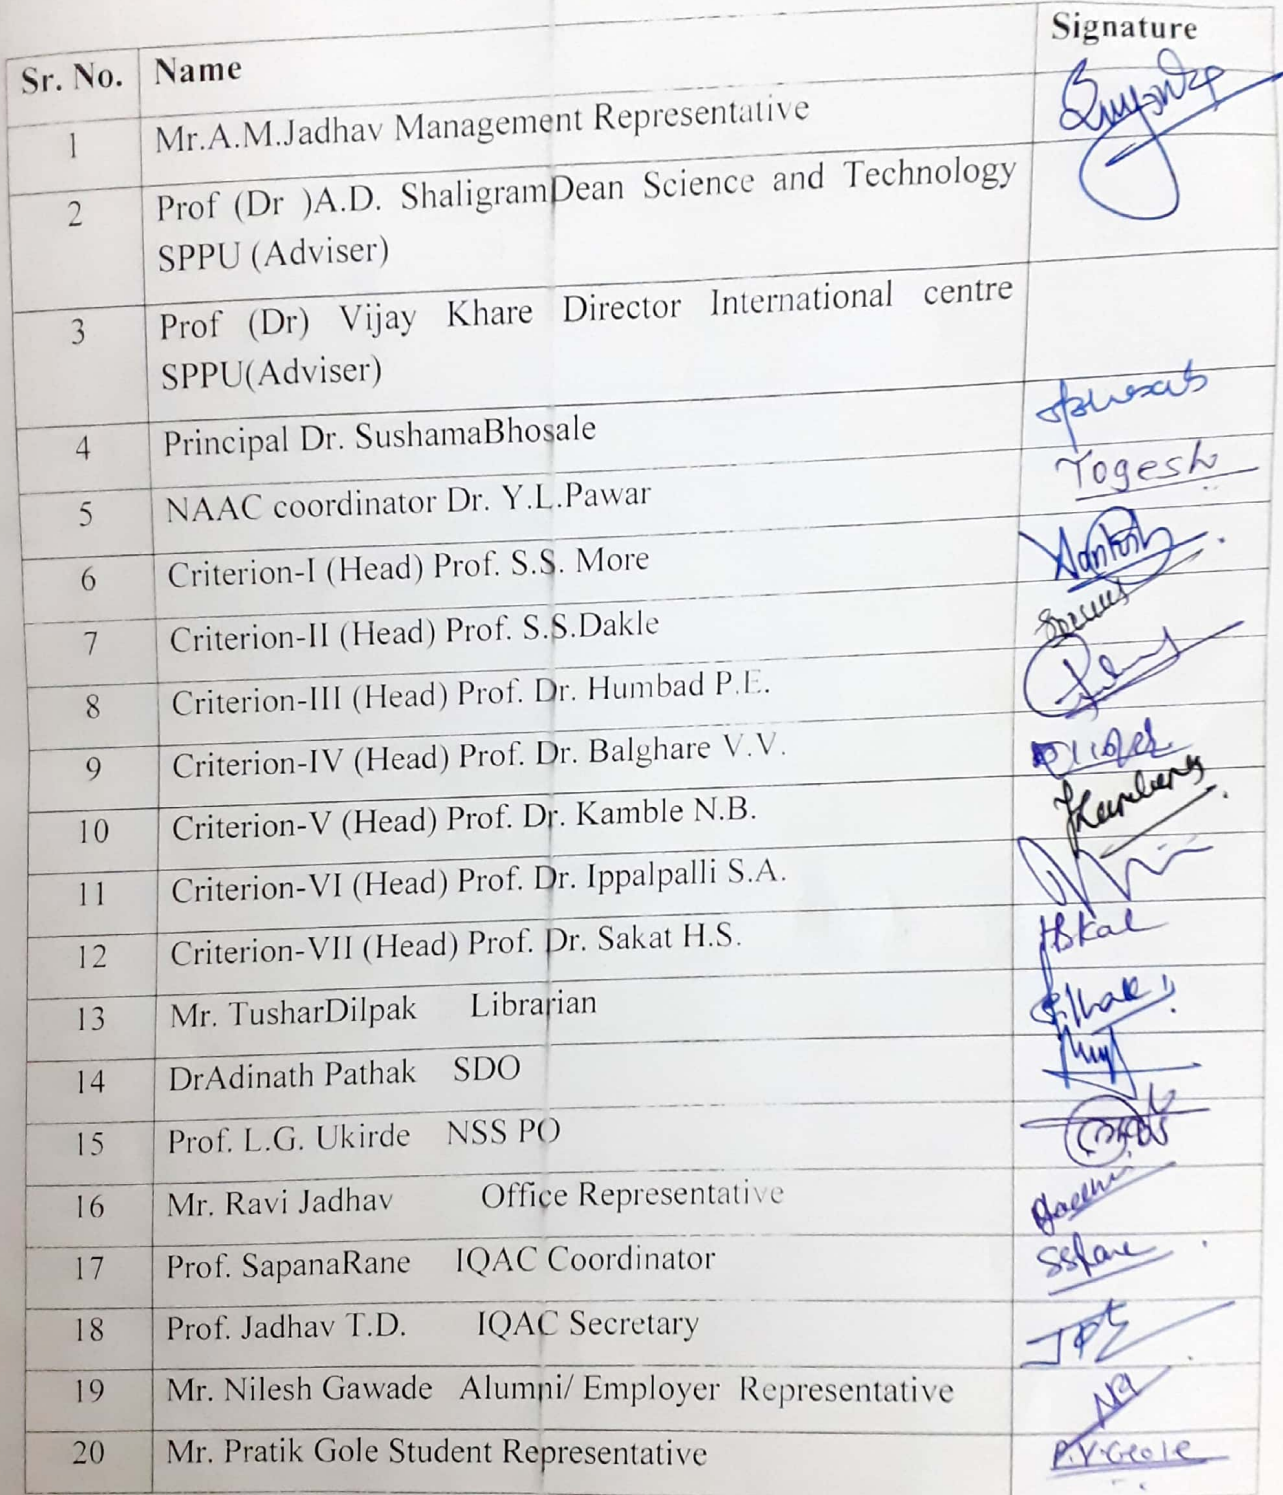 Sr. No. Name Signature
1 Mr.A.M.Jadhav Management Representative
2 Prof (Dr )A.D. ShaligramDean Science and Technology
SPPU (Adviser)
3 Prof (Dr) Vijay Khare Director International centre
SPPU(Adviser)
4 Principal Dr. SushamaBhosale
5 NAAC coordinator Dr. Y.L.Pawar Yogesh
6 Criterion-I (Head) Prof. S.S. More Santosh
7 Criterion-II (Head) Prof. S.S.Dakle
8 Criterion-III (Head) Prof. Dr. Humbad P.E.
9 Criterion-IV (Head) Prof. Dr. Balghare V.V.
10 Criterion-V (Head) Prof. Dr. Kamble N.B.
11 Criterion-VI (Head) Prof. Dr. Ippalpalli S.A.
12 Criterion-VII (Head) Prof. Dr. Sakat H.S.
13 Mr. TusharDilpak Librarian
14 DrAdinath Pathak SDO
15 Prof. L.G. Ukirde NSS PO
16 Mr. Ravi Jadhav Office Representative
17 Prof. SapanaRane IQAC Coordinator SSRane
18 Prof. Jadhav T.D. IQAC Secretary
19 Mr. Nilesh Gawade Alumni/ Employer Representative
20 Mr. Pratik Gole Student Representative P.V.Gole